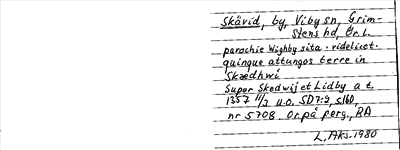 Skävid, by, Viby sn, Grim-
stens hd, Ör. l.
parochie Wighby sita . videlicet .
quinque attungos terre in
Skædhwi
Super Skedwij et Lidby a t.
1357 11/7 u.o. SD 7:2, s 160,
nr 5708. Or. på perg., RA
L. Aks. 1980